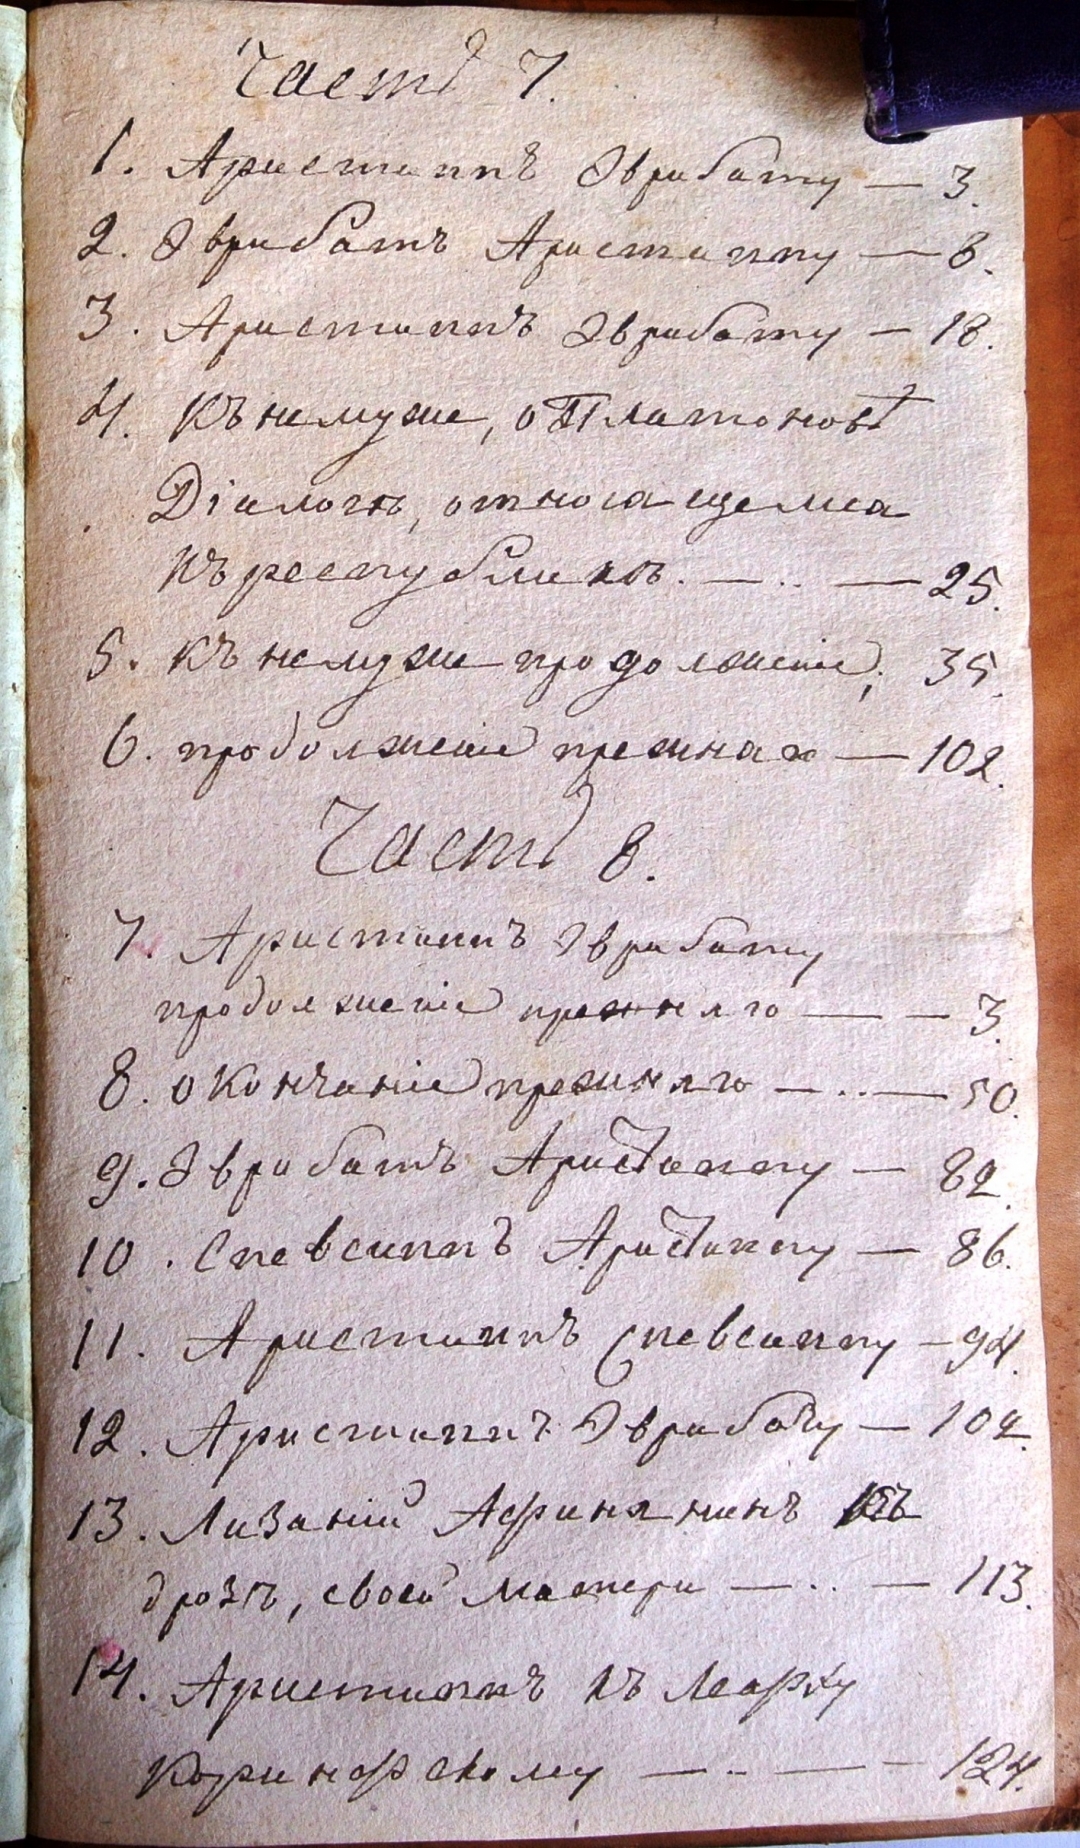 Часть 7.
1. Аристиппъ Эврибату — 3.
2. Эврибатъ Аристиппу — 8.
3. Аристиппъ Эврибату — 18.
4. Къ немуже, о Платоновѣ
Діалогѣ, относящемся
къ республикѣ. — .. — 25.
5. Къ немуже продолженіе; 35.
6. продолженіе прежнях — 102.
Часть 8.
7. Аристиппъ Эврибату
продолженіе прежняго — — 3.
8. окончаніе прежняго — .. — 50.
9. Эврибатъ Аристиппу — 82.
10. Спевсиппъ Аристиппу — 86.
11. Аристиппъ Спевсиппу — 94.
12. Аристиппъ Эврибату — 102.
13. Лизаній Афинянинъ къ
дрозѣ, своей матери — .. — 113.
14. Аристиппъ къ Леарху
Коринфскому — .. — — 124.